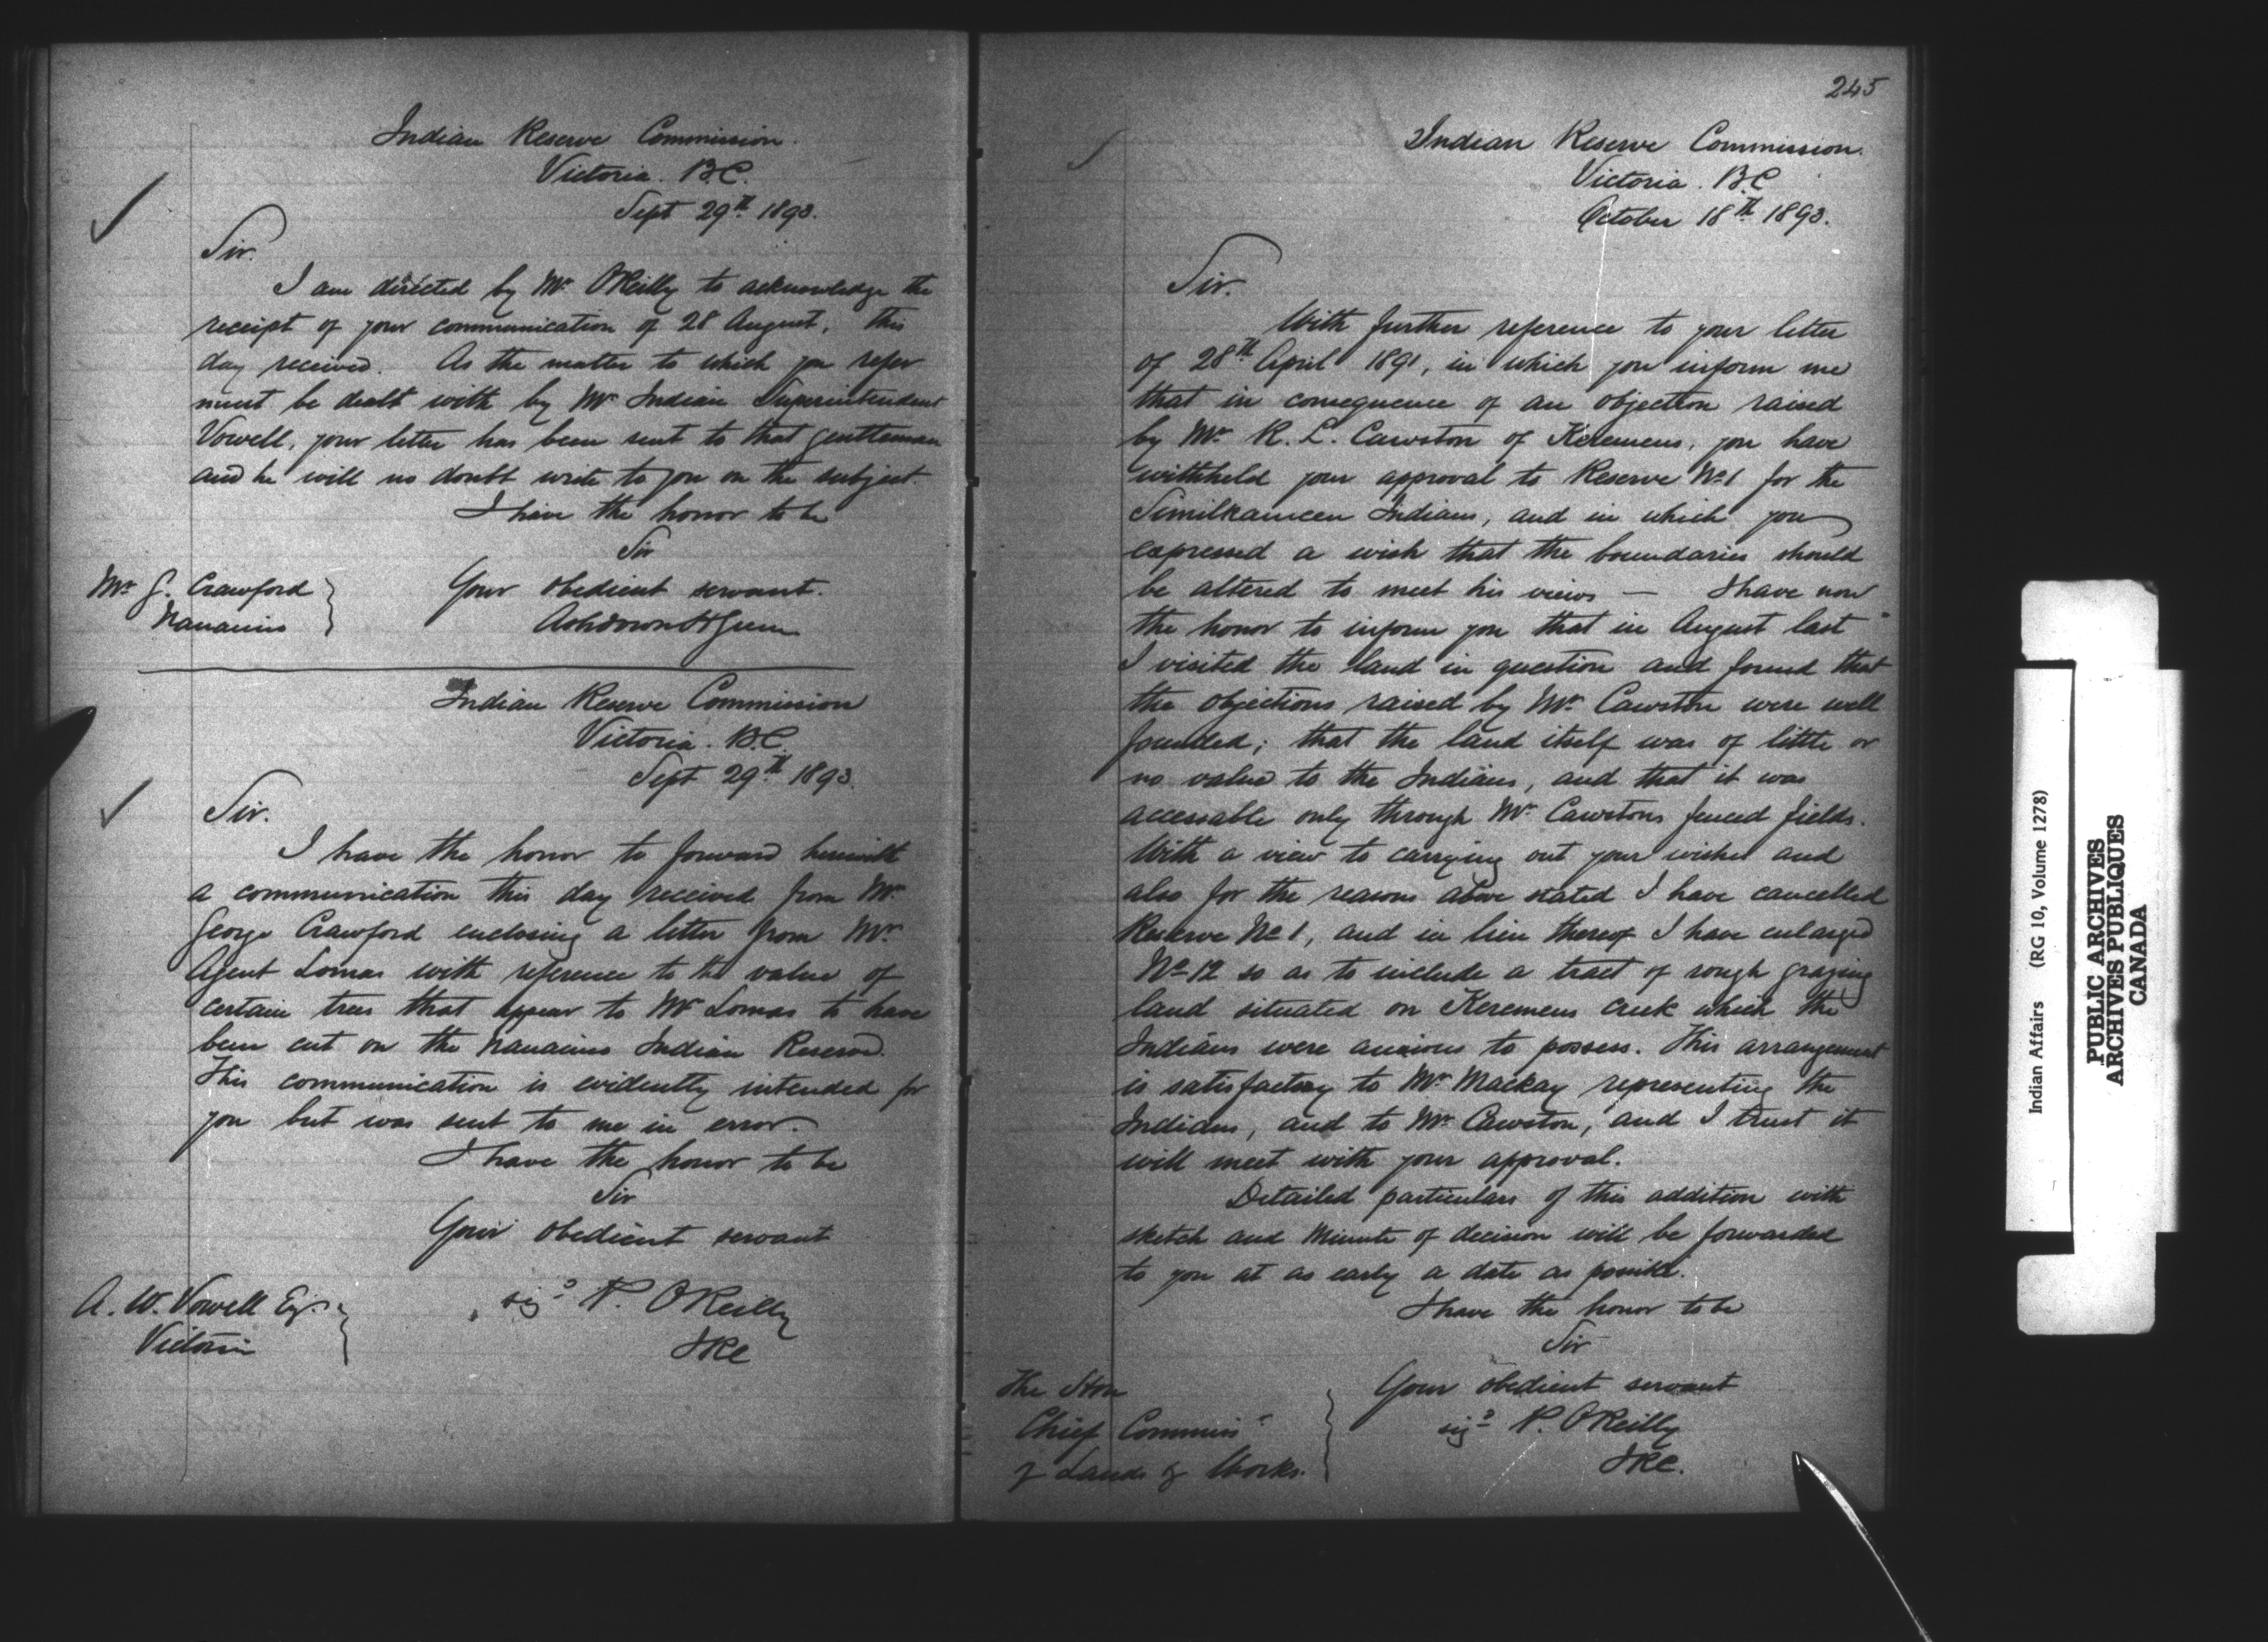 Indian Reserve Commission.
Victoria. B.C.
Sept 29th 1893.
Sir.
I am directed by Mr O'Reilly to acknowledge the
receipt of your communication of 28 August, this
day received. As the matter to which you refer
must be dealt with by Mr Indian Superintendent
Vowell, your letter has been sent to that gentleman
and he will no doubt write to you on the subject.
I have the honor to be
Sir
Your obedient servant.
Ashdown H Green
Mr G. Crawford
Nanaimo
Indian Reserve Commission
Victoria. B.C.
Sept 29th 1893.
Sir.
I have the honor to forward herewith
a communication this day received from Mr.
George Crawford enclosing a letter from Mr.
Agent Lomas with reference to the value of
certain trees that appear to Mr Lomas to have
been cut on the Nanaimo Indian Reserve.
This communication is evidently intended for
you but was sent to me in error.
I have the honor to be
Sir
Your obedient servant
sigd P. O'Reilly
IRC
A. W. Vowell Esq.
Victoria
245
Indian Reserve Commission.
Victoria. B.C
October 18th 1893.
Sir.
With further reference to your letter
of 28th April 1891, in which you inform me
that in consequence of an objection raised
by Mr R. L. Cawston of Keremeus, you have
withheld your approval to Reserve No 1 for the
Similkameen Indians, and in which you
expressed a wish that the boundaries should
be altered to meet his views — I have now
the honor to inform you that in August last
I visited the land in question and found that
the objections raised by Mr Cawston were well
founded; that the land itself was of little or
no value to the Indians, and that it was
accessable only through Mr Cawstons fenced fields.
With a view to carrying out your wishes and
also for the reasons above stated I have cancelled
Reserve No 1, and in lieu thereof I have enlarged
No 12 so as to include a tract of rough grazing
land situated on Keremeus Creek which the
Indians were anxious to possess. This arrangement
is satisfactory to Mr Mackay representing the
Indians, and to Mr Cawston, and I trust it
will meet with your approval.
Detailed particulars of this addition with
sketch and Minute of decision will be forwarded
to you at as early a date as possible.
I have the honor to be
Sir
Your obedient servant
sigd P. O'Reilly
IRC.
The Hon
Chief Commissr
of Lands & Works.
Indian Affairs (RG 10, Volume 1278)
PUBLIC ARCHIVES
ARCHIVES PUBLIQUES
CANADA